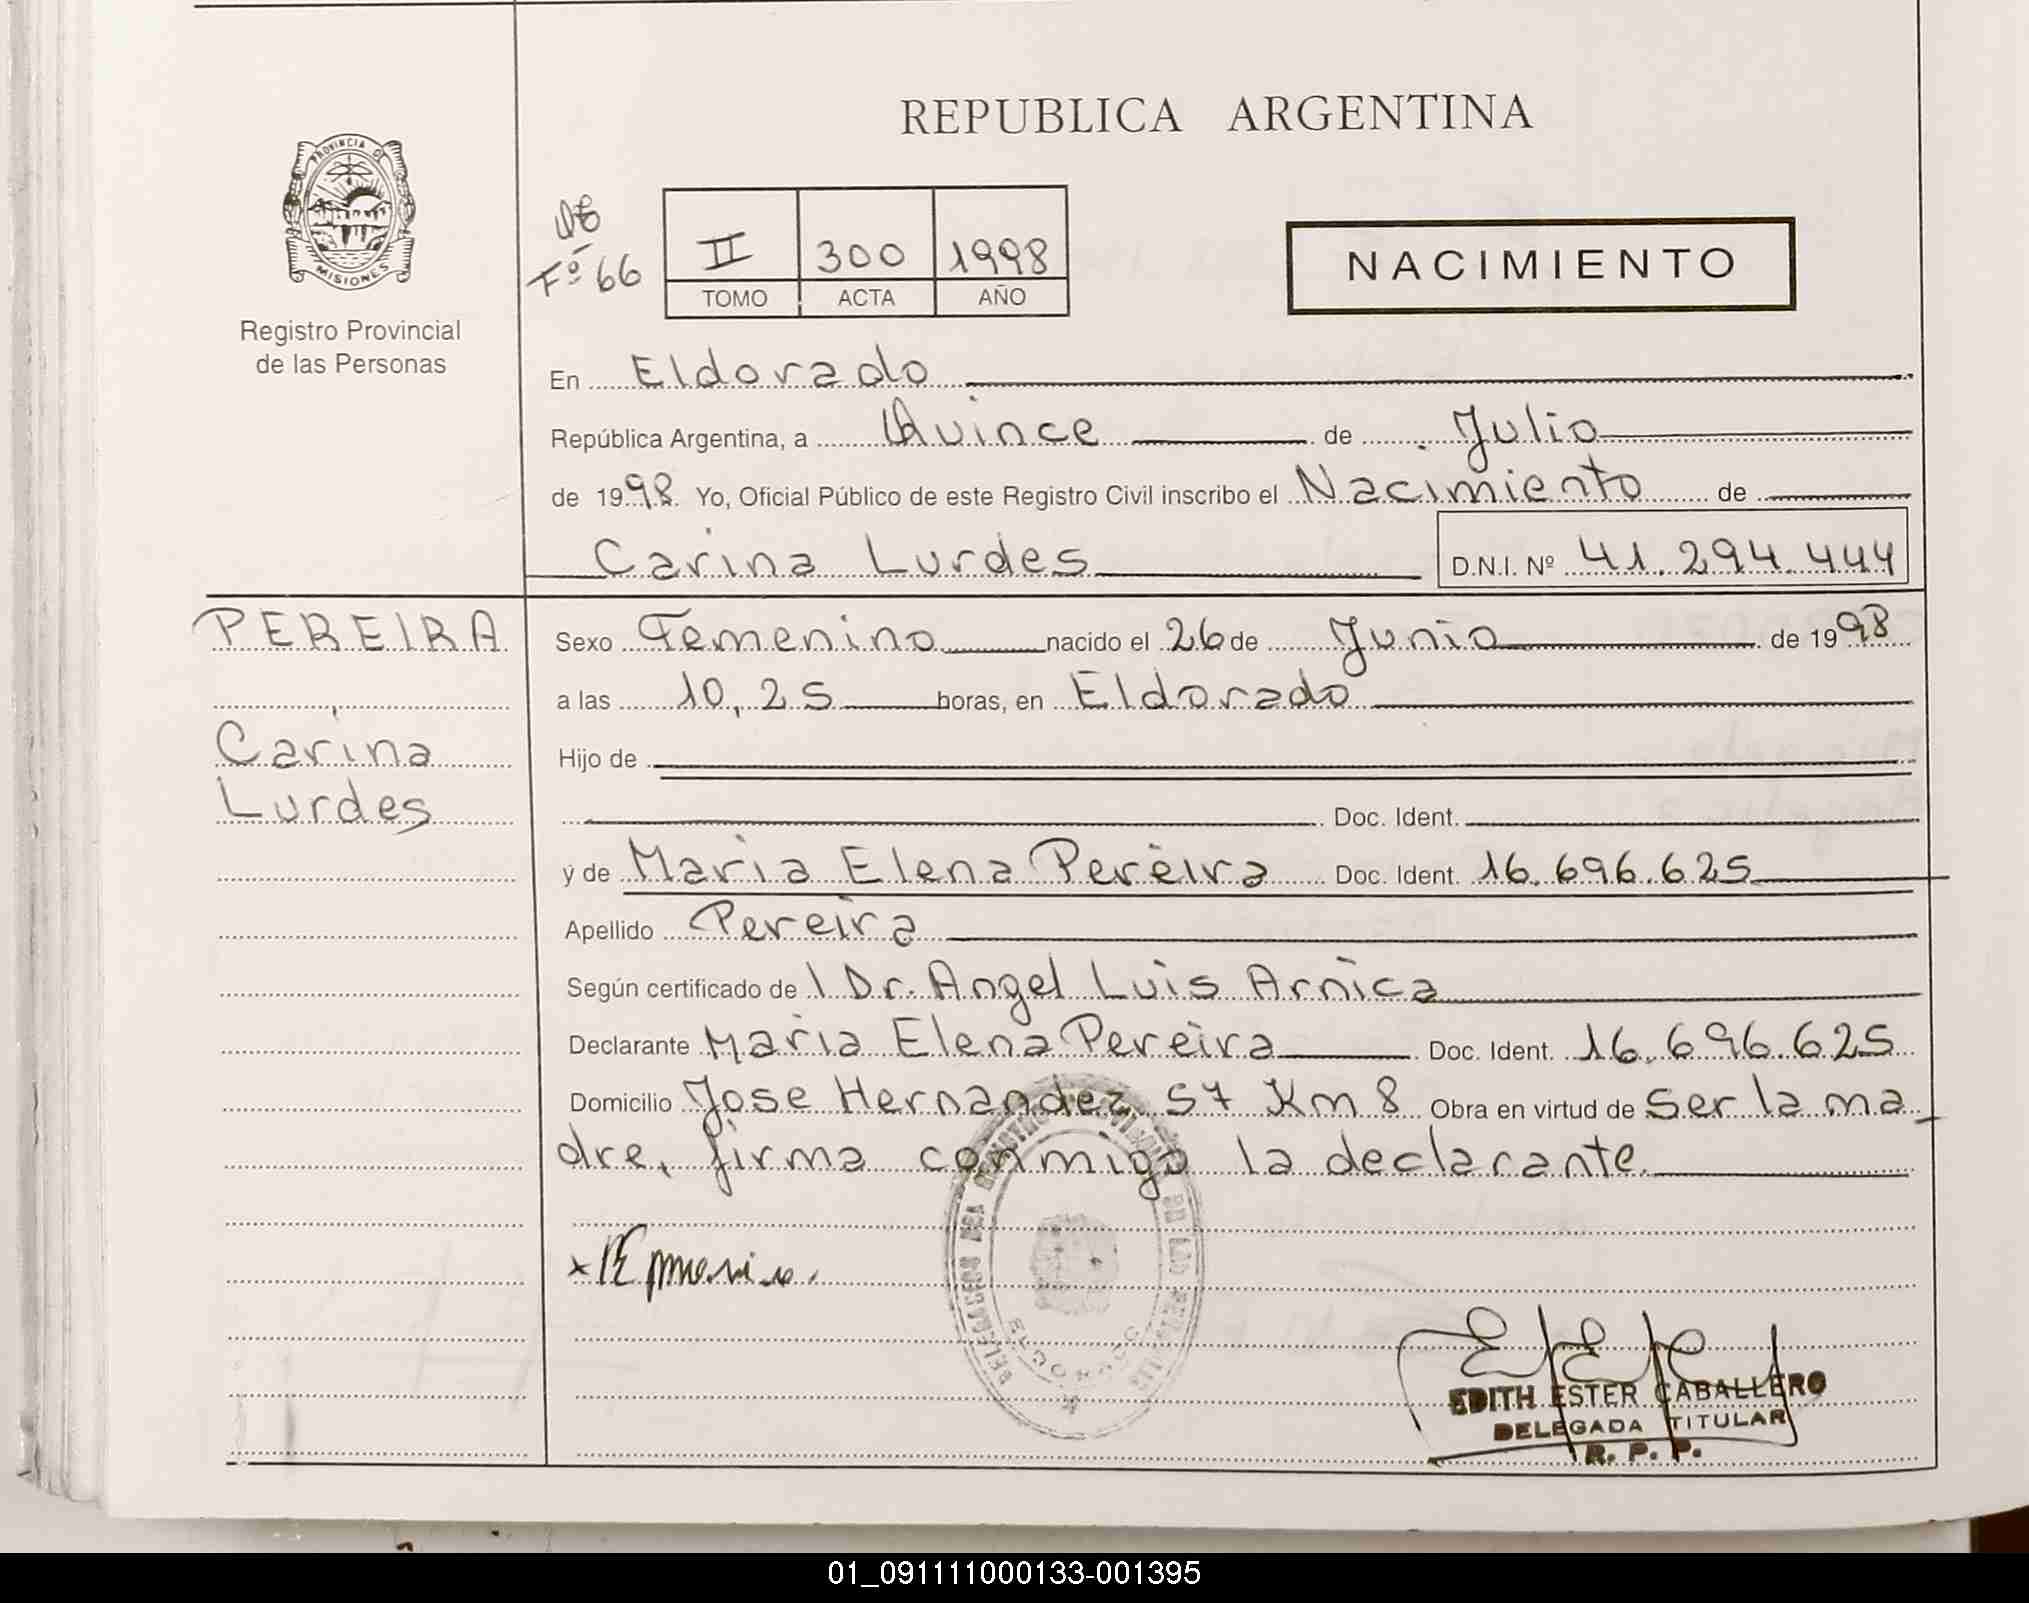 REPUBLICA ARGENTINA
PROVINCIA DE
MISIONES
Registro Provincial
de las Personas
Fº 66
II 300 1998
TOMO ACTA AÑO
NACIMIENTO
En Eldorado
República Argentina, a Quince de Julio
de 1998. Yo, Oficial Público de este Registro Civil inscribo el Nacimiento de
Carina Lurdes D.N.I. Nº 41.294.444
PEREIRA
Carina
Lurdes
Sexo Femenino nacido el 26 de Junio de 1998
a las 10,25 horas, en Eldorado
Hijo de
Doc. Ident.
y de Maria Elena Pereira Doc. Ident. 16.696.625
Apellido Pereira
Según certificado de l Dr. Angel Luis Arnica
Declarante Maria Elena Pereira Doc. Ident. 16.696.625
Domicilio Jose Hernandez 57 Km 8 Obra en virtud de ser la ma
dre, firma conmigo la declarante.
ELDORADO
EDITH ESTER CABALLERO
DELEGADA TITULAR
R. P. P.
01_091111000133-001395